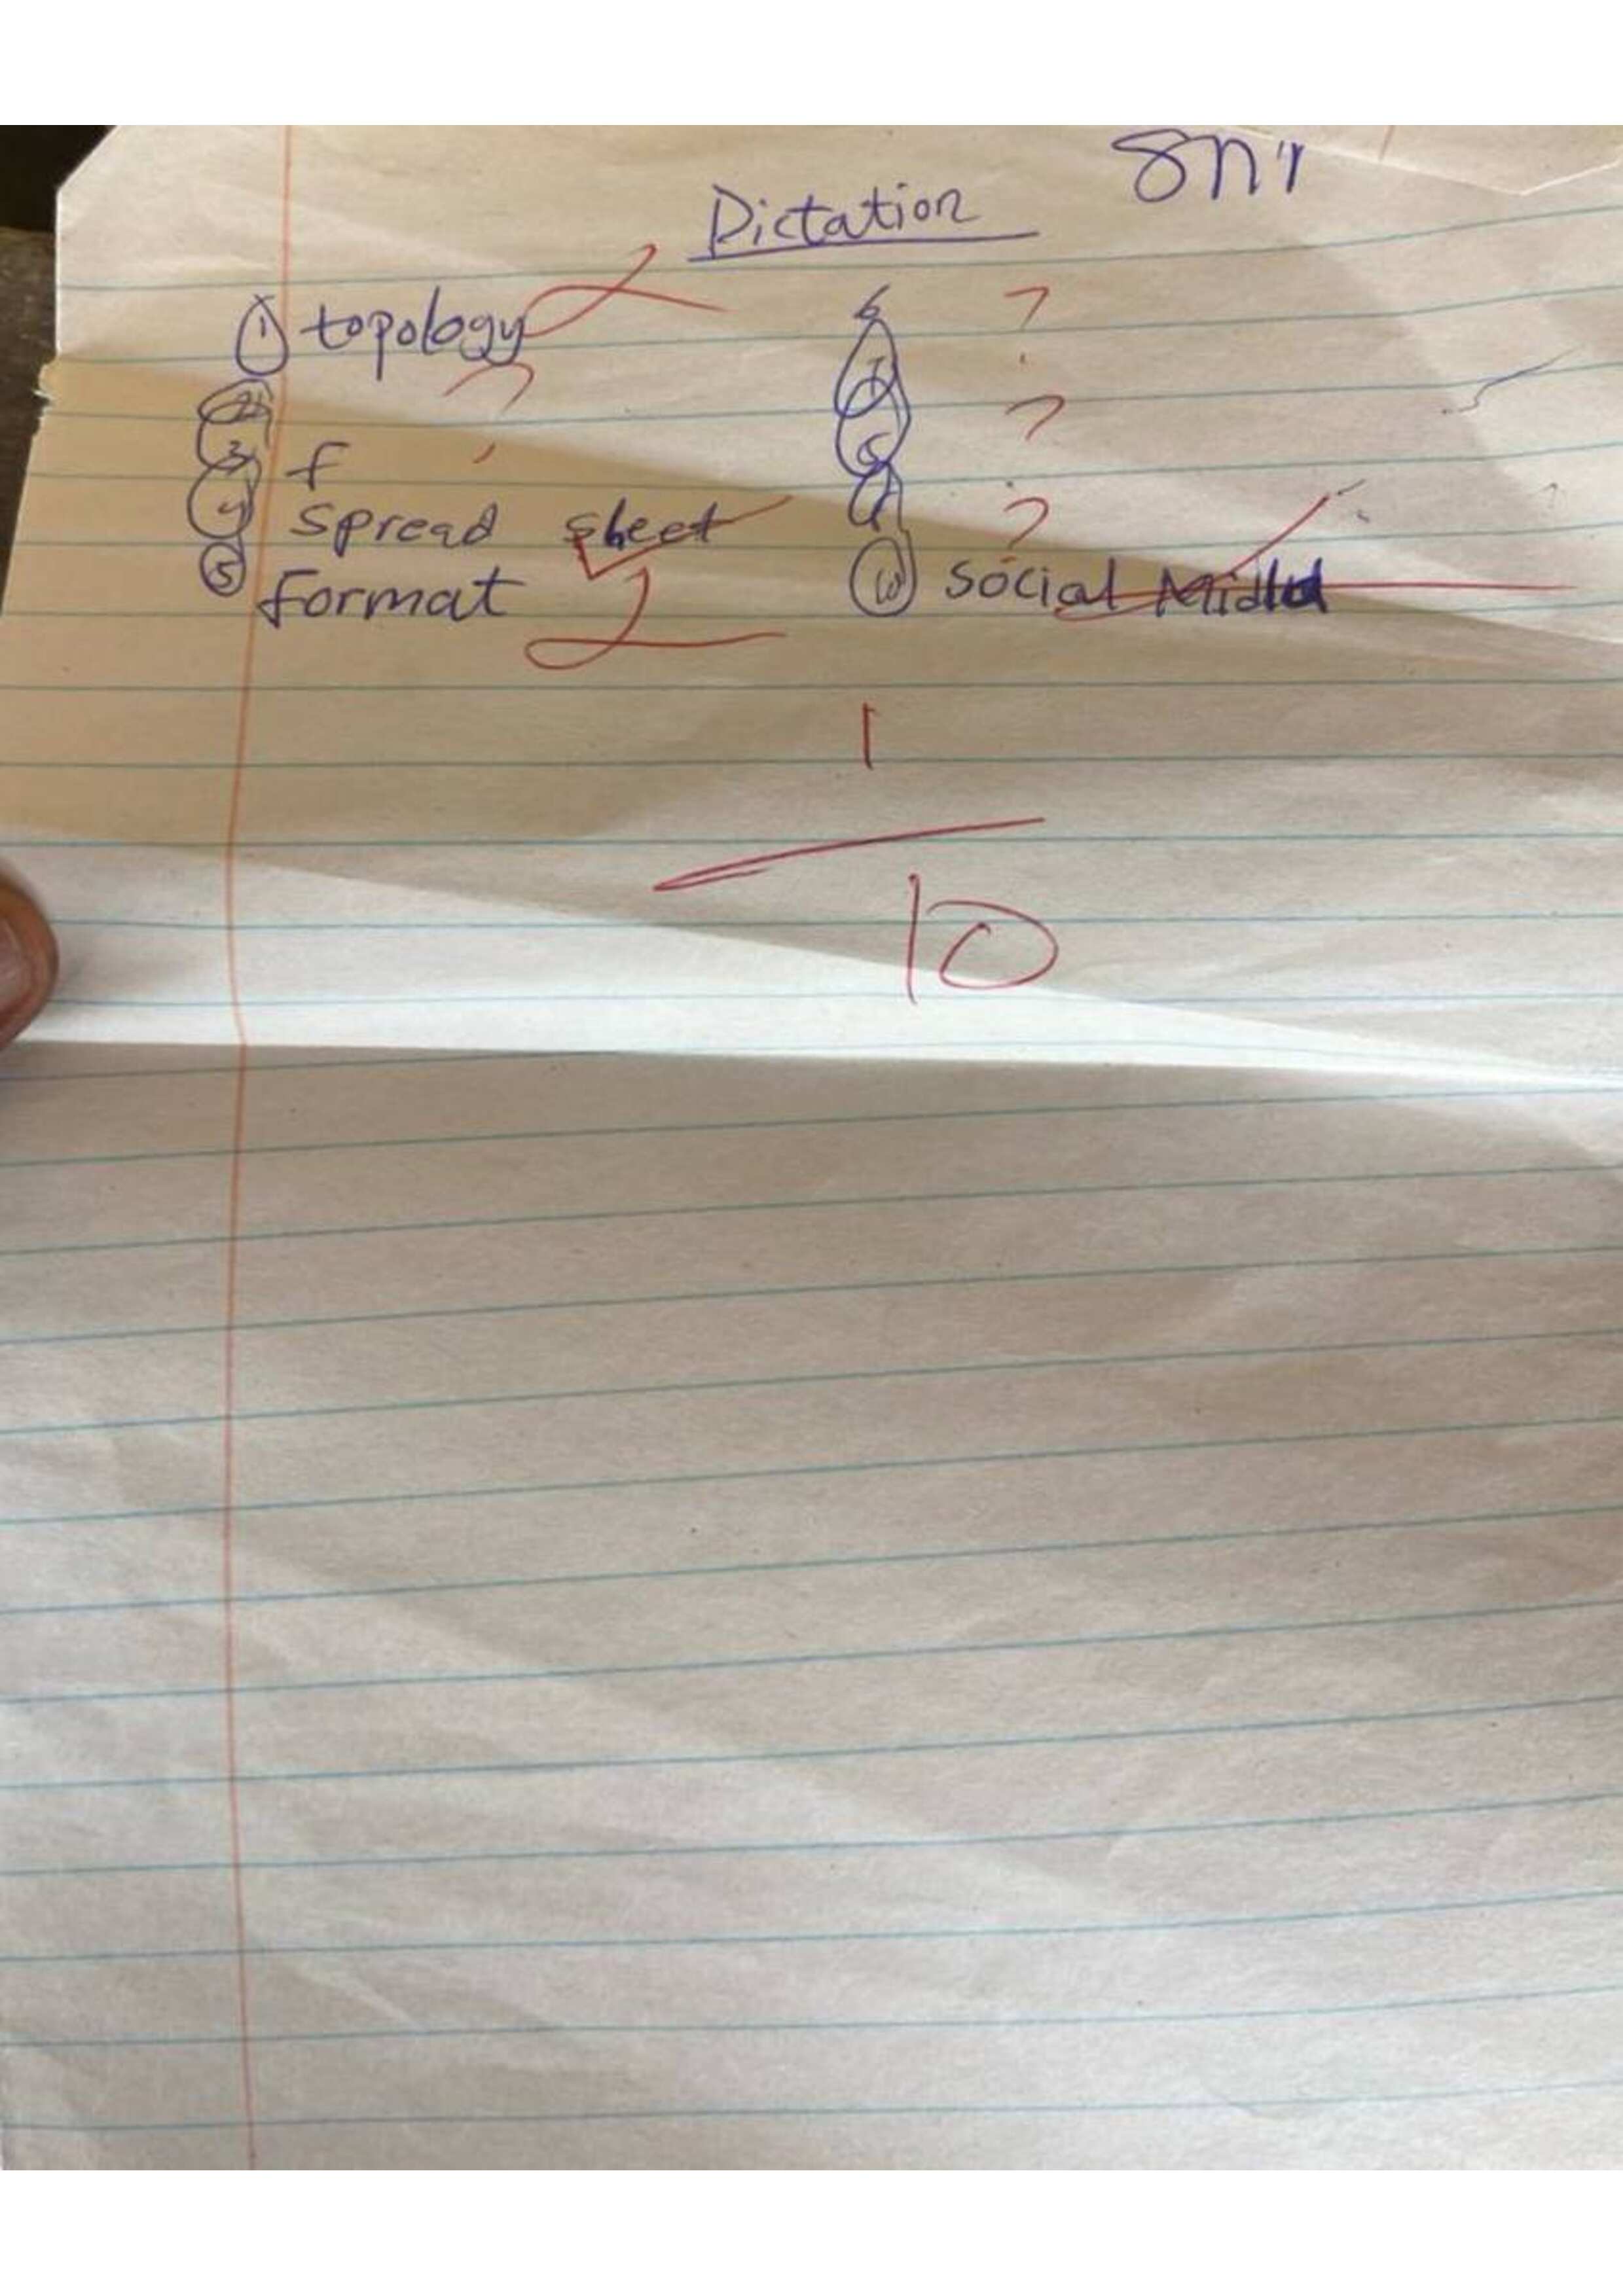 8N1
Dictation
① topology
②
③ f
④ spread sheet
⑤ format
6 ?
⑦
⑧ ?
⑨ ?
⑩ social
1
10